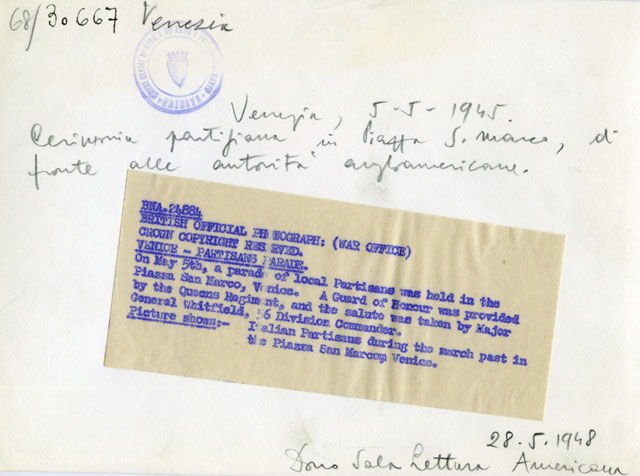 68/30667 Venezia
Venezia, 5-5-1945.
Cerimonia partigiana in Piazza S. Marco, di
fronte alle autorità angloamericane.
BNA.24884
BRITISH OFFICIAL PHOTOGRAPH: (WAR OFFICE)
CROWN COPYRIGHT RESERVED.
VENICE - PARTISANS PARADE.
On May 5th, a parade of local Partisans was held in the
Piazza San Marco, Venice. A Guard of Honour was provided
by the Queens Regiment, and the salute was taken by Major
General Whitfield, 56 Division Commander.
Picture shows:- Italian Partisans during the march past in
the Piazza San Marcom Venice.
28.5.1948
Dono Sala Lettura Americana